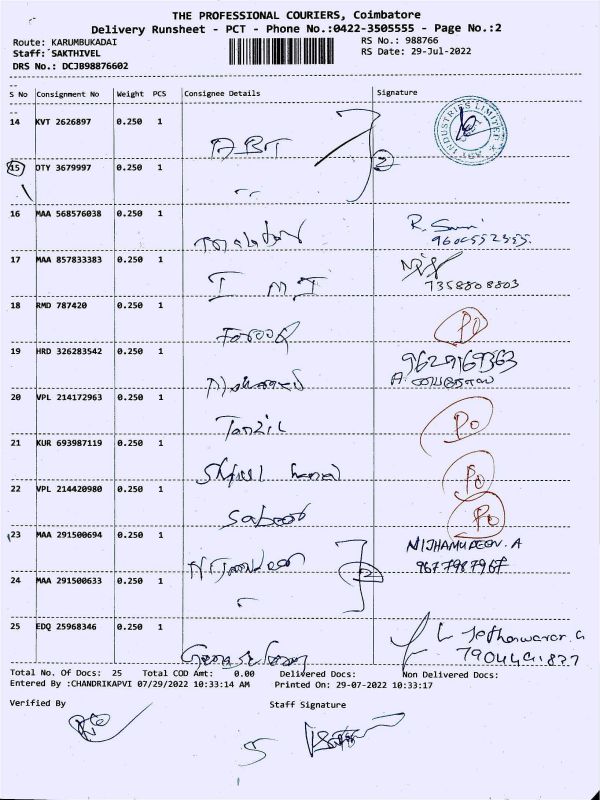 THE PROFESSIONAL COURIERS, Coimbatore
Delivery Runsheet - PCT - Phone No.:0422-3505555 - Page No.:2
Route: KARUMBUKADAI
RS No.: 988766
Staff: SAKTHIVEL
RS Date: 29-Jul-2022
DRS No.: DCJB98876602
S No Consignment No Weight PCS Consignee Details Signature
14 KVT 2626897 0.250 1
ABT
INDUSTRIES LIMITED
15 OTY 3679997 0.250 1
2
16 MAA 568576038 0.250 1
17 MAA 857833383 0.250 1
I M I
7358808803
18 RMD 787420 0.250 1
Farook
Po
19 HRD 326283542 0.250 1
9629169363
20 VPL 214172963 0.250 1
Tanzil
Po
21 KUR 693987119 0.250 1
Po
22 VPL 214420980 0.250 1
Sabeer
Po
23 MAA 291500694 0.250 1
NIJHAMUDEEN. A
9677987967
24 MAA 291500633 0.250 1
2
25 EDQ 25968346 0.250 1
Total No. Of Docs: 25 Total COD Amt: 0.00 Delivered Docs: Non Delivered Docs:
Entered By :CHANDRIKAPVI 07/29/2022 10:33:14 AM Printed On: 29-07-2022 10:33:17
Verified By Staff Signature
5